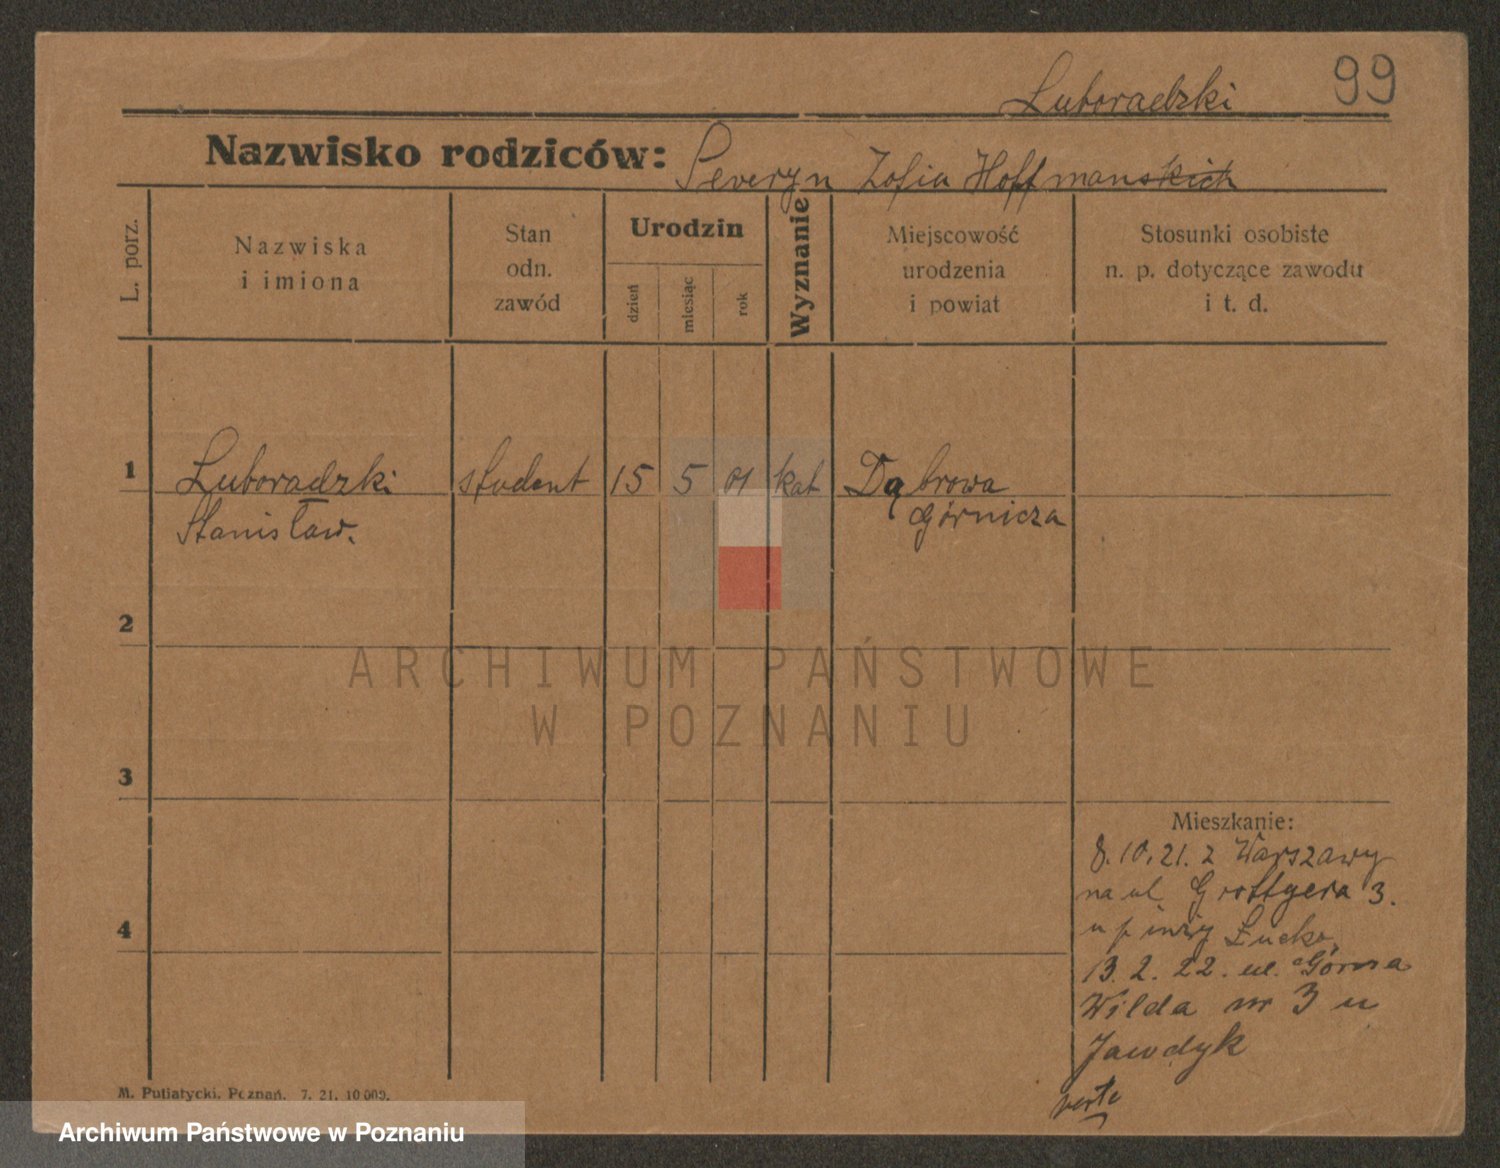 Luboradzki 99
Nazwisko rodziców: Seweryn Zofia Hoffmanskich
L. porz.
Nazwiska
i imiona
Stan
odn.
zawód
Urodzin
dzień
miesiąc
rok
Wyznanie
Miejscowość
urodzenia
i powiat
Stosunki osobiste
n. p. dotyczące zawodu
i t. d.
1 Luboradzki student 15 5 01 kat Dąbrowa
Stanisław. Górnicza
2
ARCHIWUM PAŃSTWOWE
W POZNANIU
3
Mieszkanie:
8.10.21. z Warszawy
na ul Grottgera 3.
u p inży
4
13.2.22. ul. Górna
Wilda nr 3 u
Jawdyk
verte
M. Putiatycki, Poznań. 7. 21. 10 000.
Archiwum Państwowe w Poznaniu